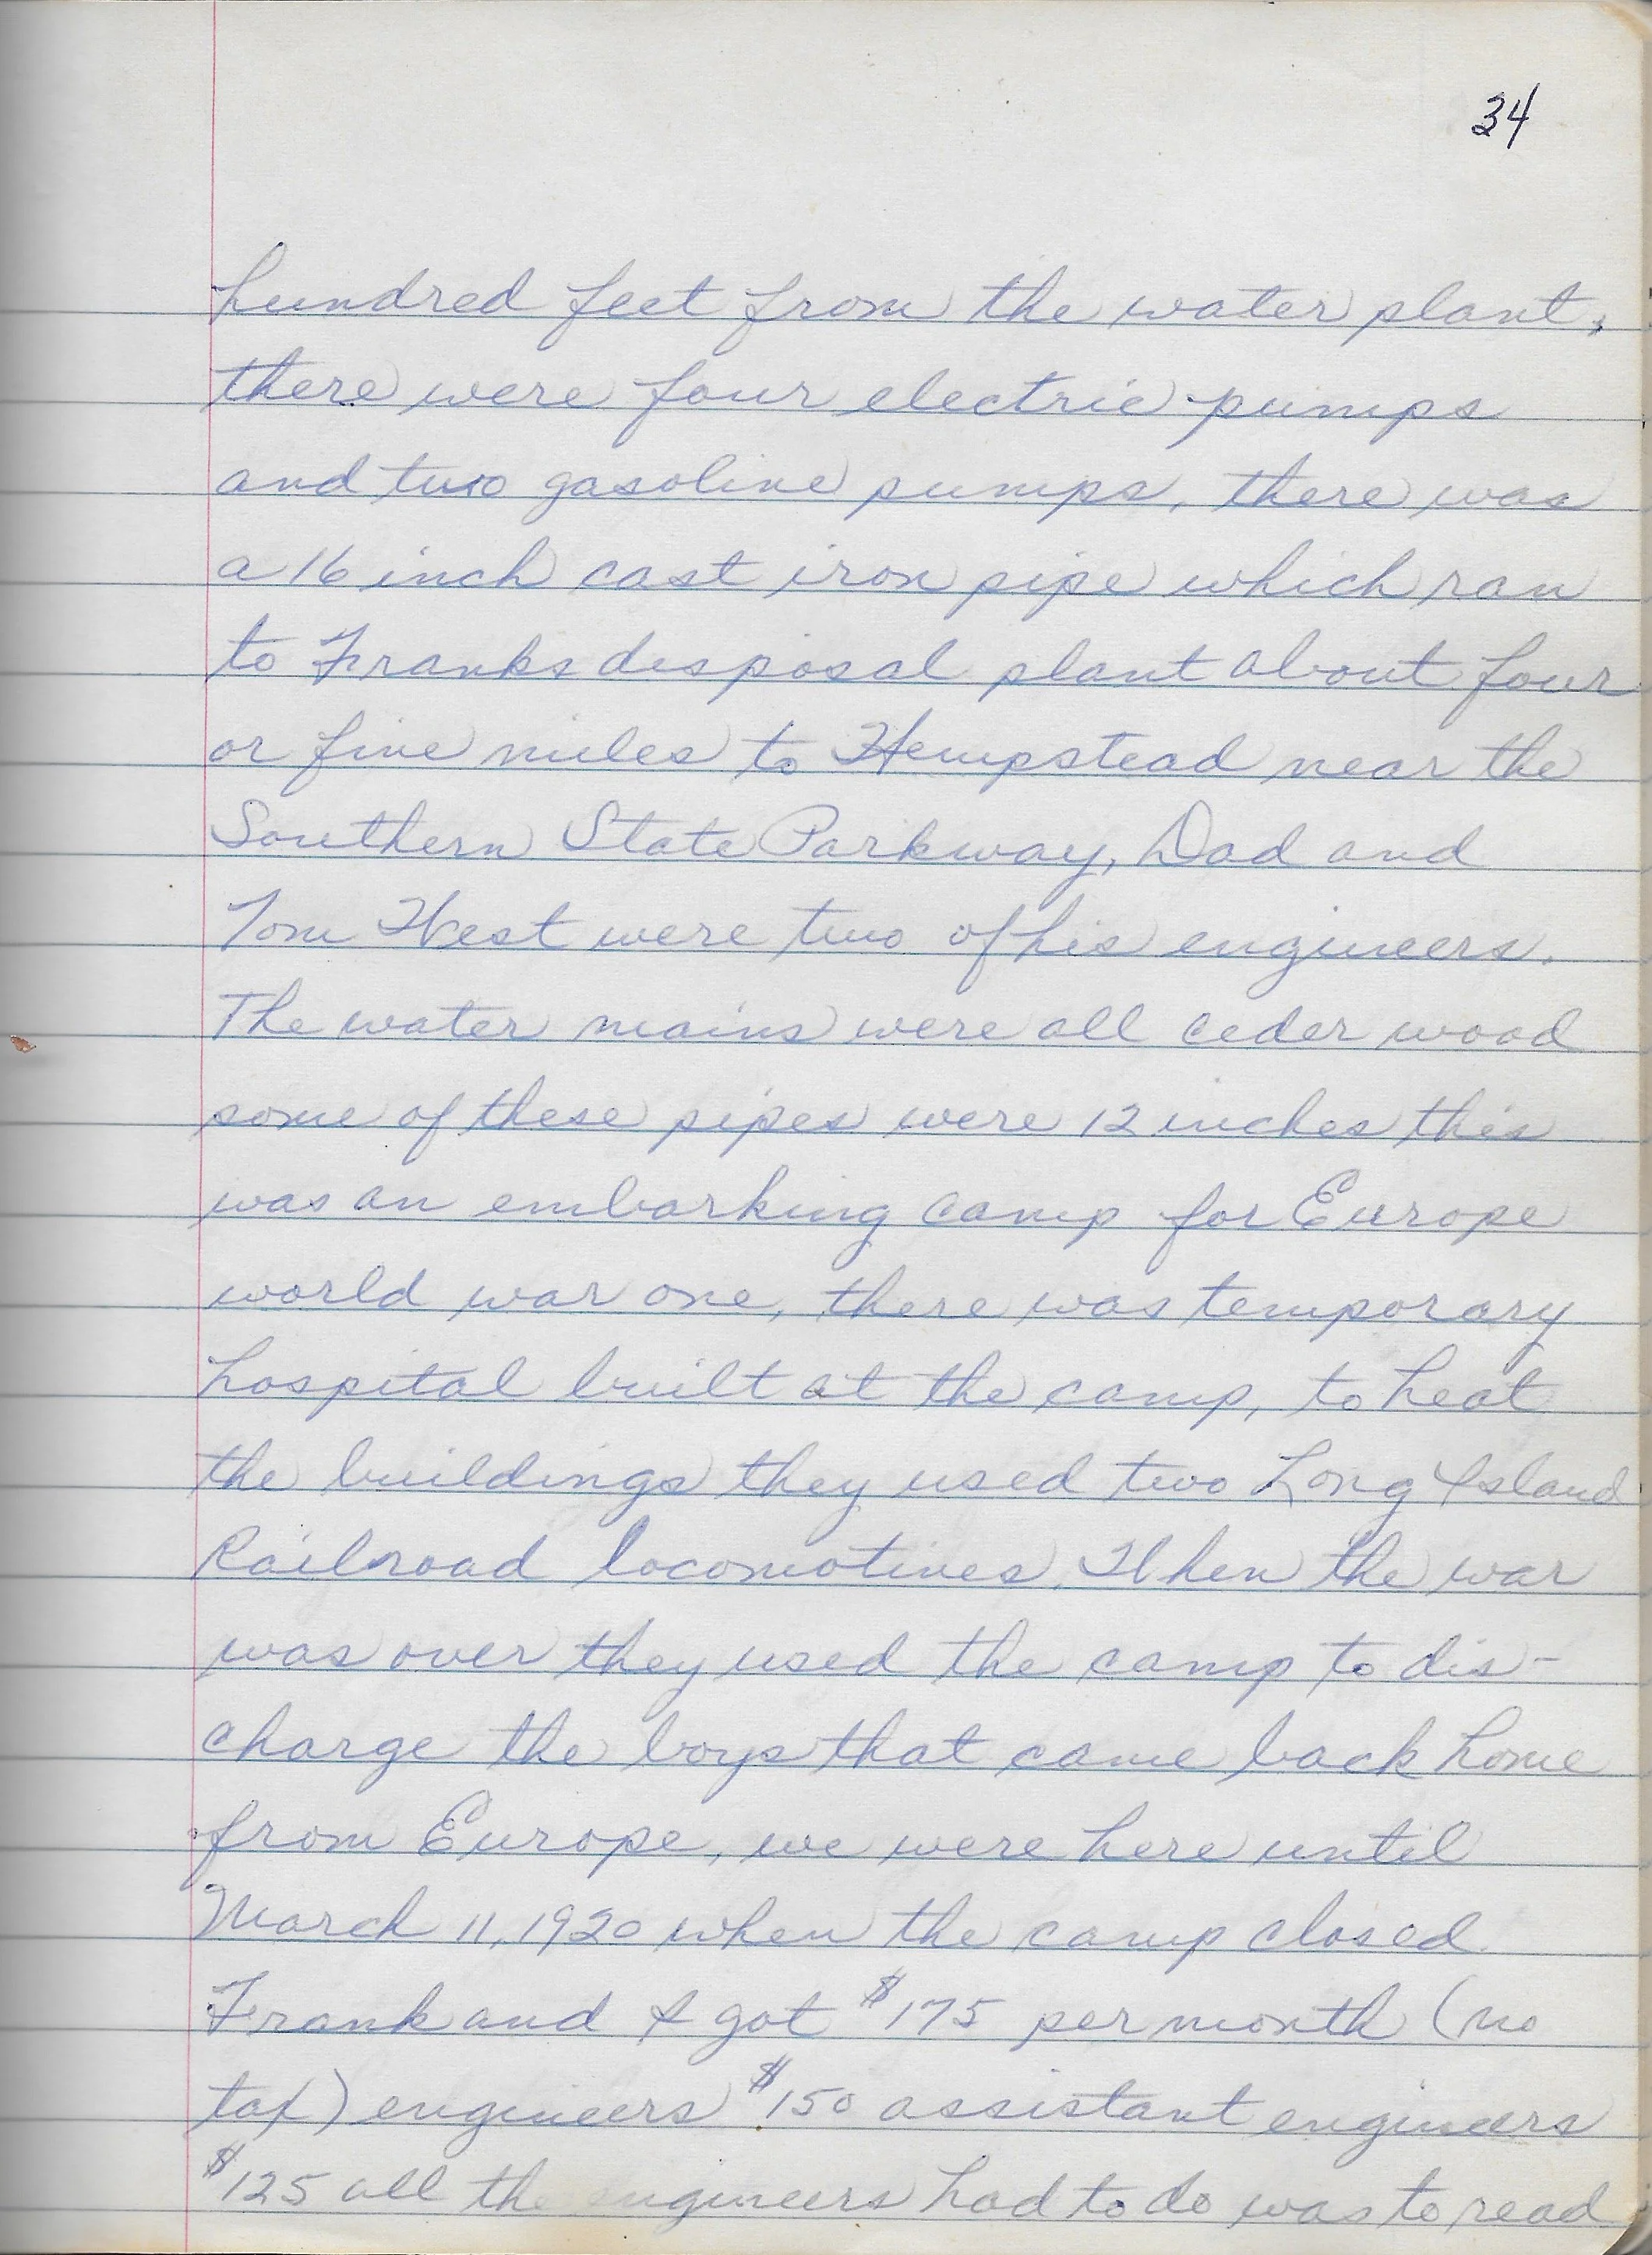 34
hundred feet from the water plant,
there were four electric pumps
and two gasoline pumps, there was
a 16 inch cast iron pipe which ran
to Franks disposal plant about four
or five miles to Hempstead near the
Southern State Parkway, Dad and
Tom West were two of his engineers.
The water mains were all ceder wood
some of these pipes were 12 inches this
was an embarking camp for Europe
world war one, there was temporary
hospital built at the camp, to heat
the buildings they used two Long Island
Railroad locomotives. When the war
was over they used the camp to dis-
charge the boys that came back home
from Europe, we were here until
March 11, 1920 when the camp closed.
Frank and I got $175 per month (no
tax) engineers $150 assistant engineers
$125 all the engineers had to do was to read